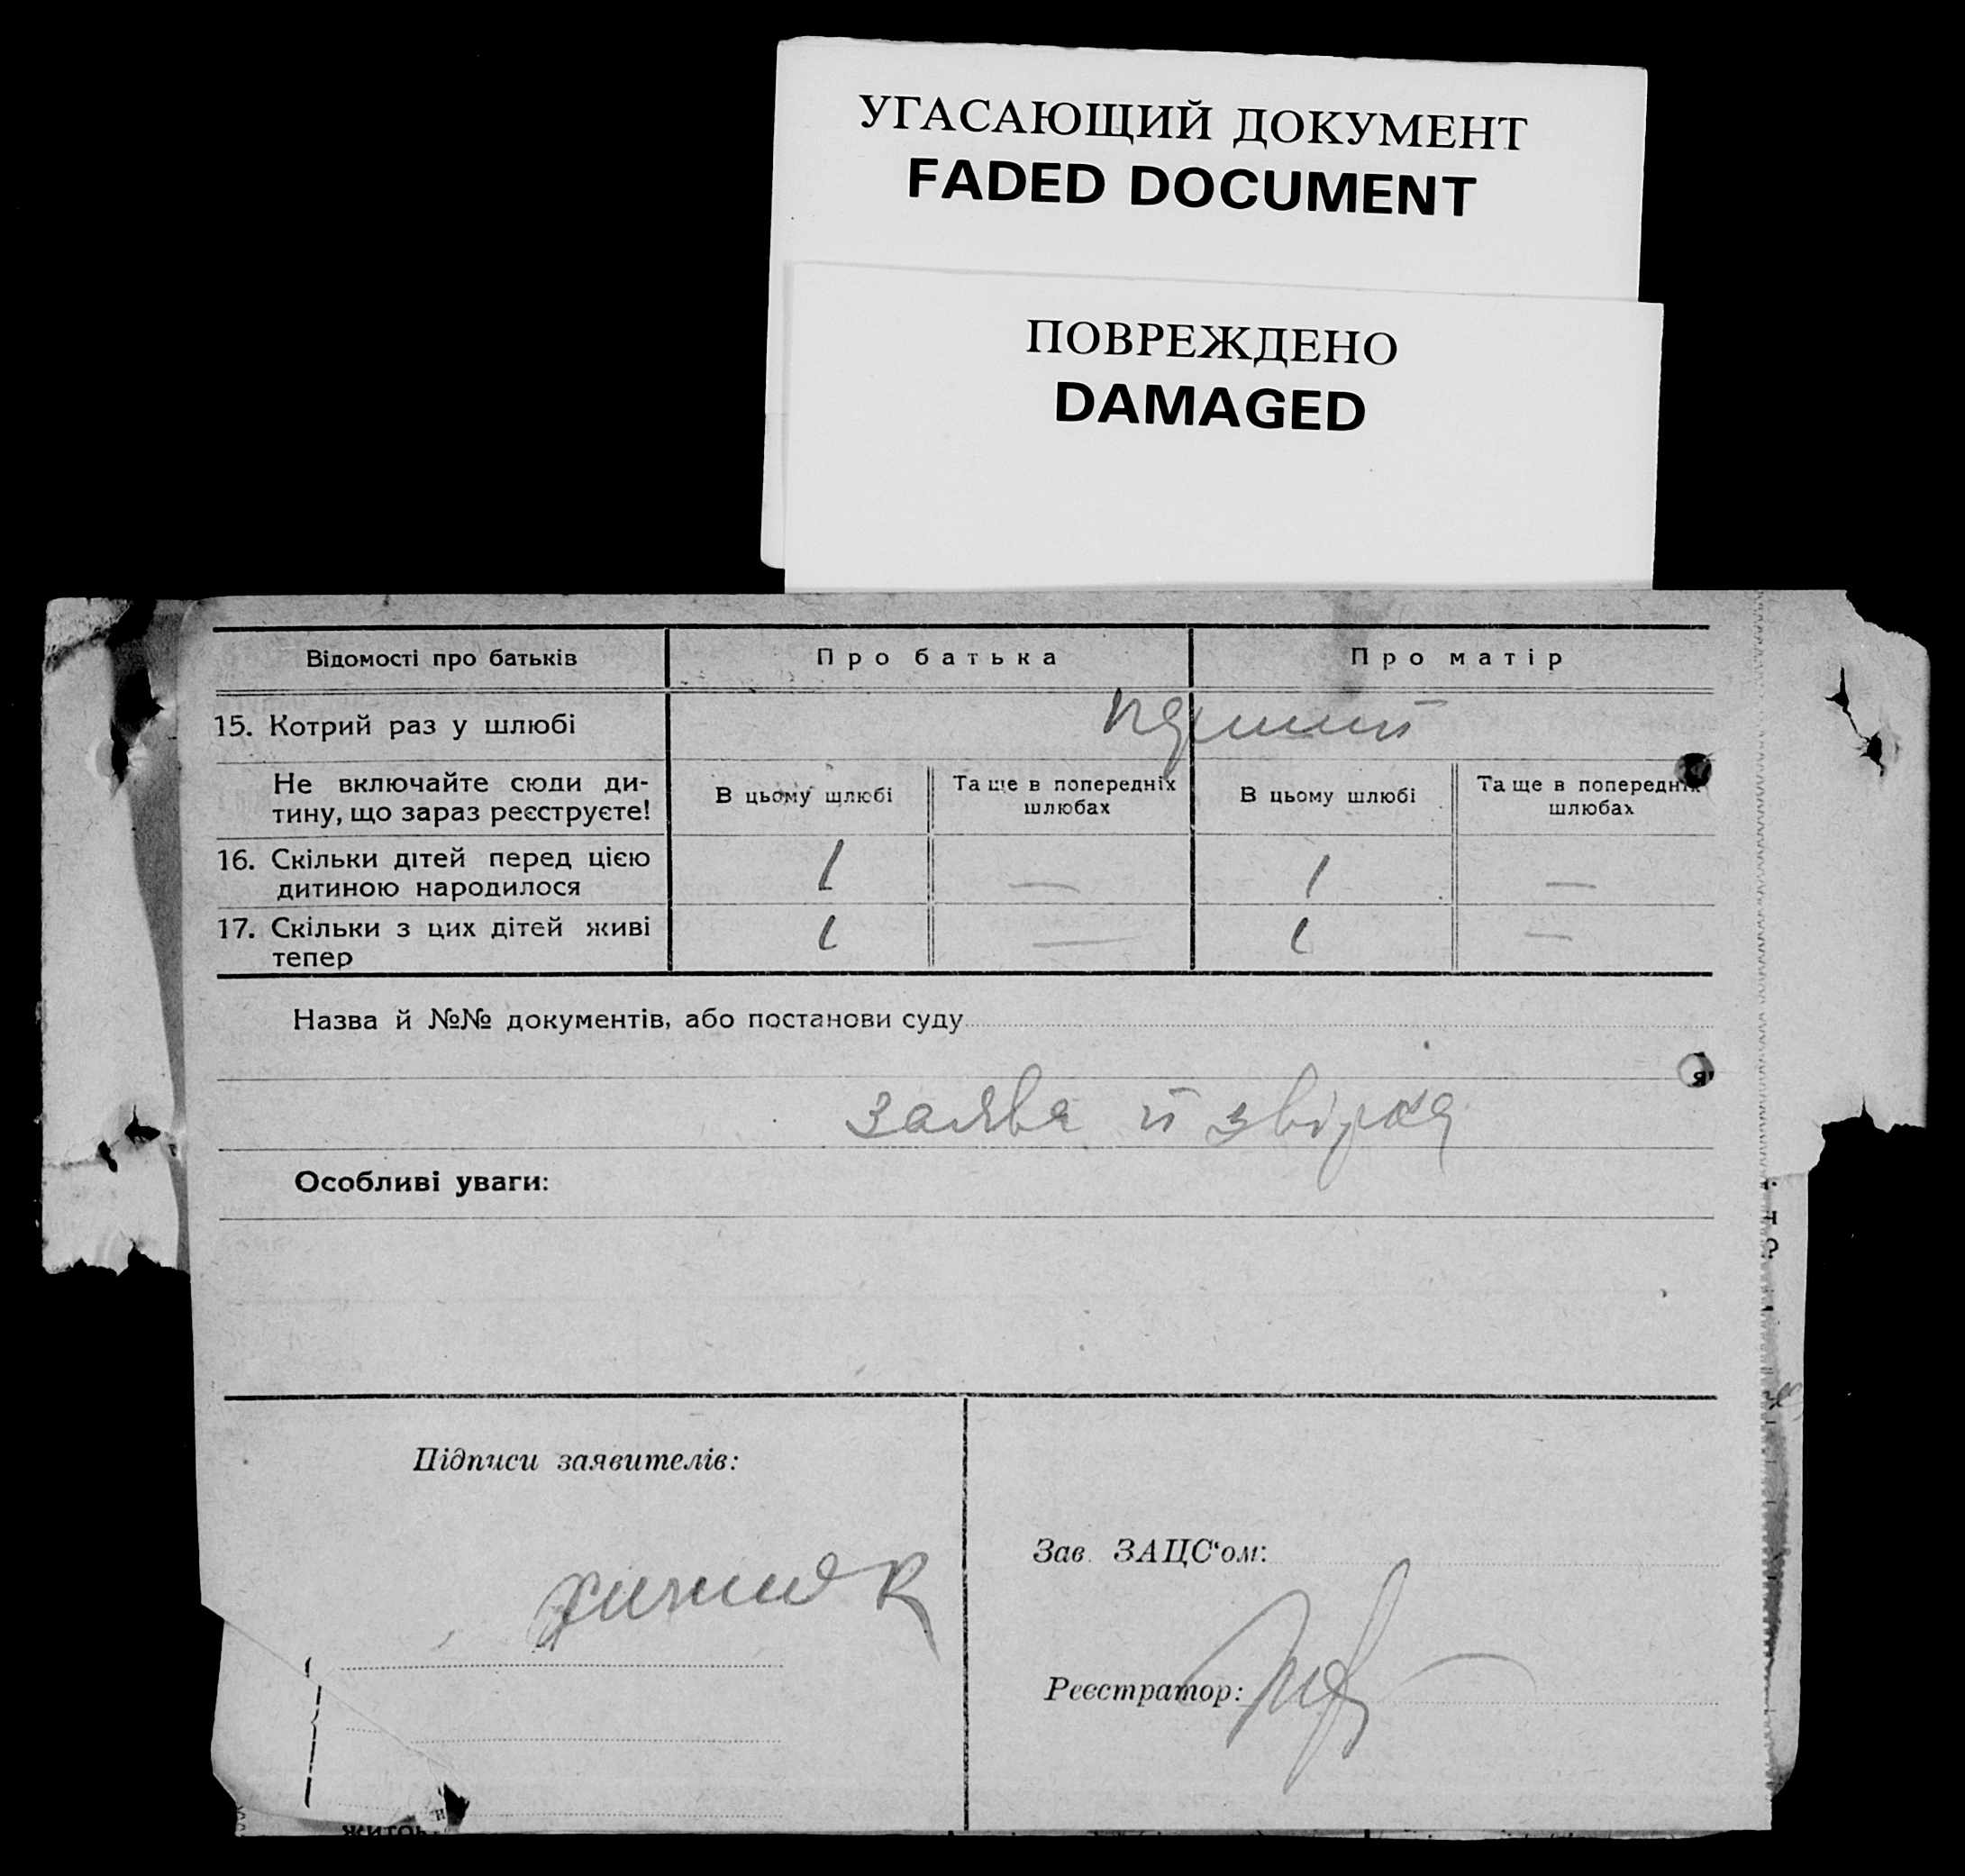 УГАСАЮЩИЙ ДОКУМЕНТ
FADED DOCUMENT
ПОВРЕЖДЕНО
DAMAGED
Відомості про батьків
Про батька
Про матір
15. Котрий раз у шлюбі
перший
Не включайте сюди ди-
тину, що зараз реєструєте!
В цьому шлюбі
Та ще в попередніх
шлюбах
В цьому шлюбі
Та ще в попередніх
шлюбах
16. Скільки дітей перед цією
дитиною народилося
1
—
1
—
17. Скільки з цих дітей живі
тепер
1
—
1
—
Назва й №№ документів, або постанови суду
заява й звірка
Особливі уваги:
Підписи заявителів:
Зав. ЗАЦС‘ом:
Реєстратор: